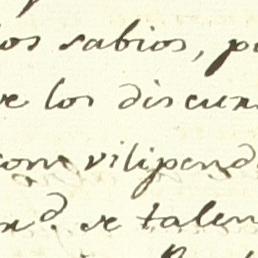 los sabios, p
ve los discur
con vilipend
nd. se talen